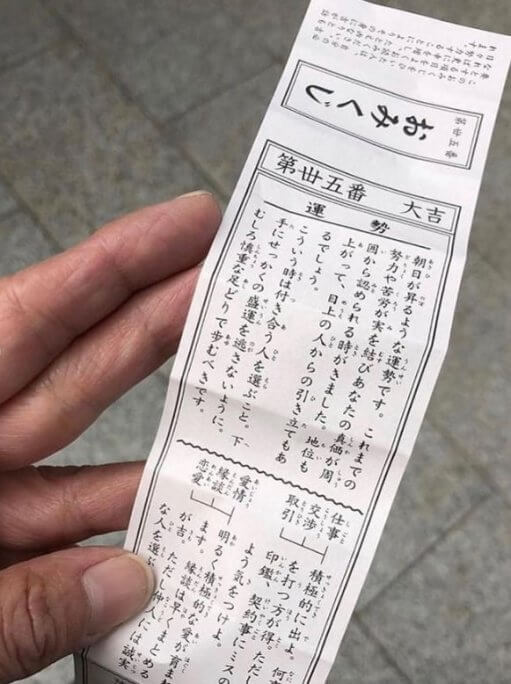 おみくじ
第丗五番
第丗五番 大吉
運勢
朝日が昇るような運勢です。これまでの
努力や苦労が実を結びあなたの真価が周
囲から認められる時がきました。地位も
上がって、目上の人からの引き立てもあ
るでしょう。
こういう時は付き合う人を選ぶこと。下
手にせっかくの盛運を逃さないように、
むしろ慎重な足どりで歩むべきです。
仕事
交渉
取引
積極的に出よ。何
を打つ方が得。ただし
印鑑、契約事にミスの
よう気をつけよ。
愛情
縁談
恋愛
明るく積極的な愛が育まれ
ます。縁談は早くまとめる
が吉。ただし仲人には誠実
な人を選ぶ